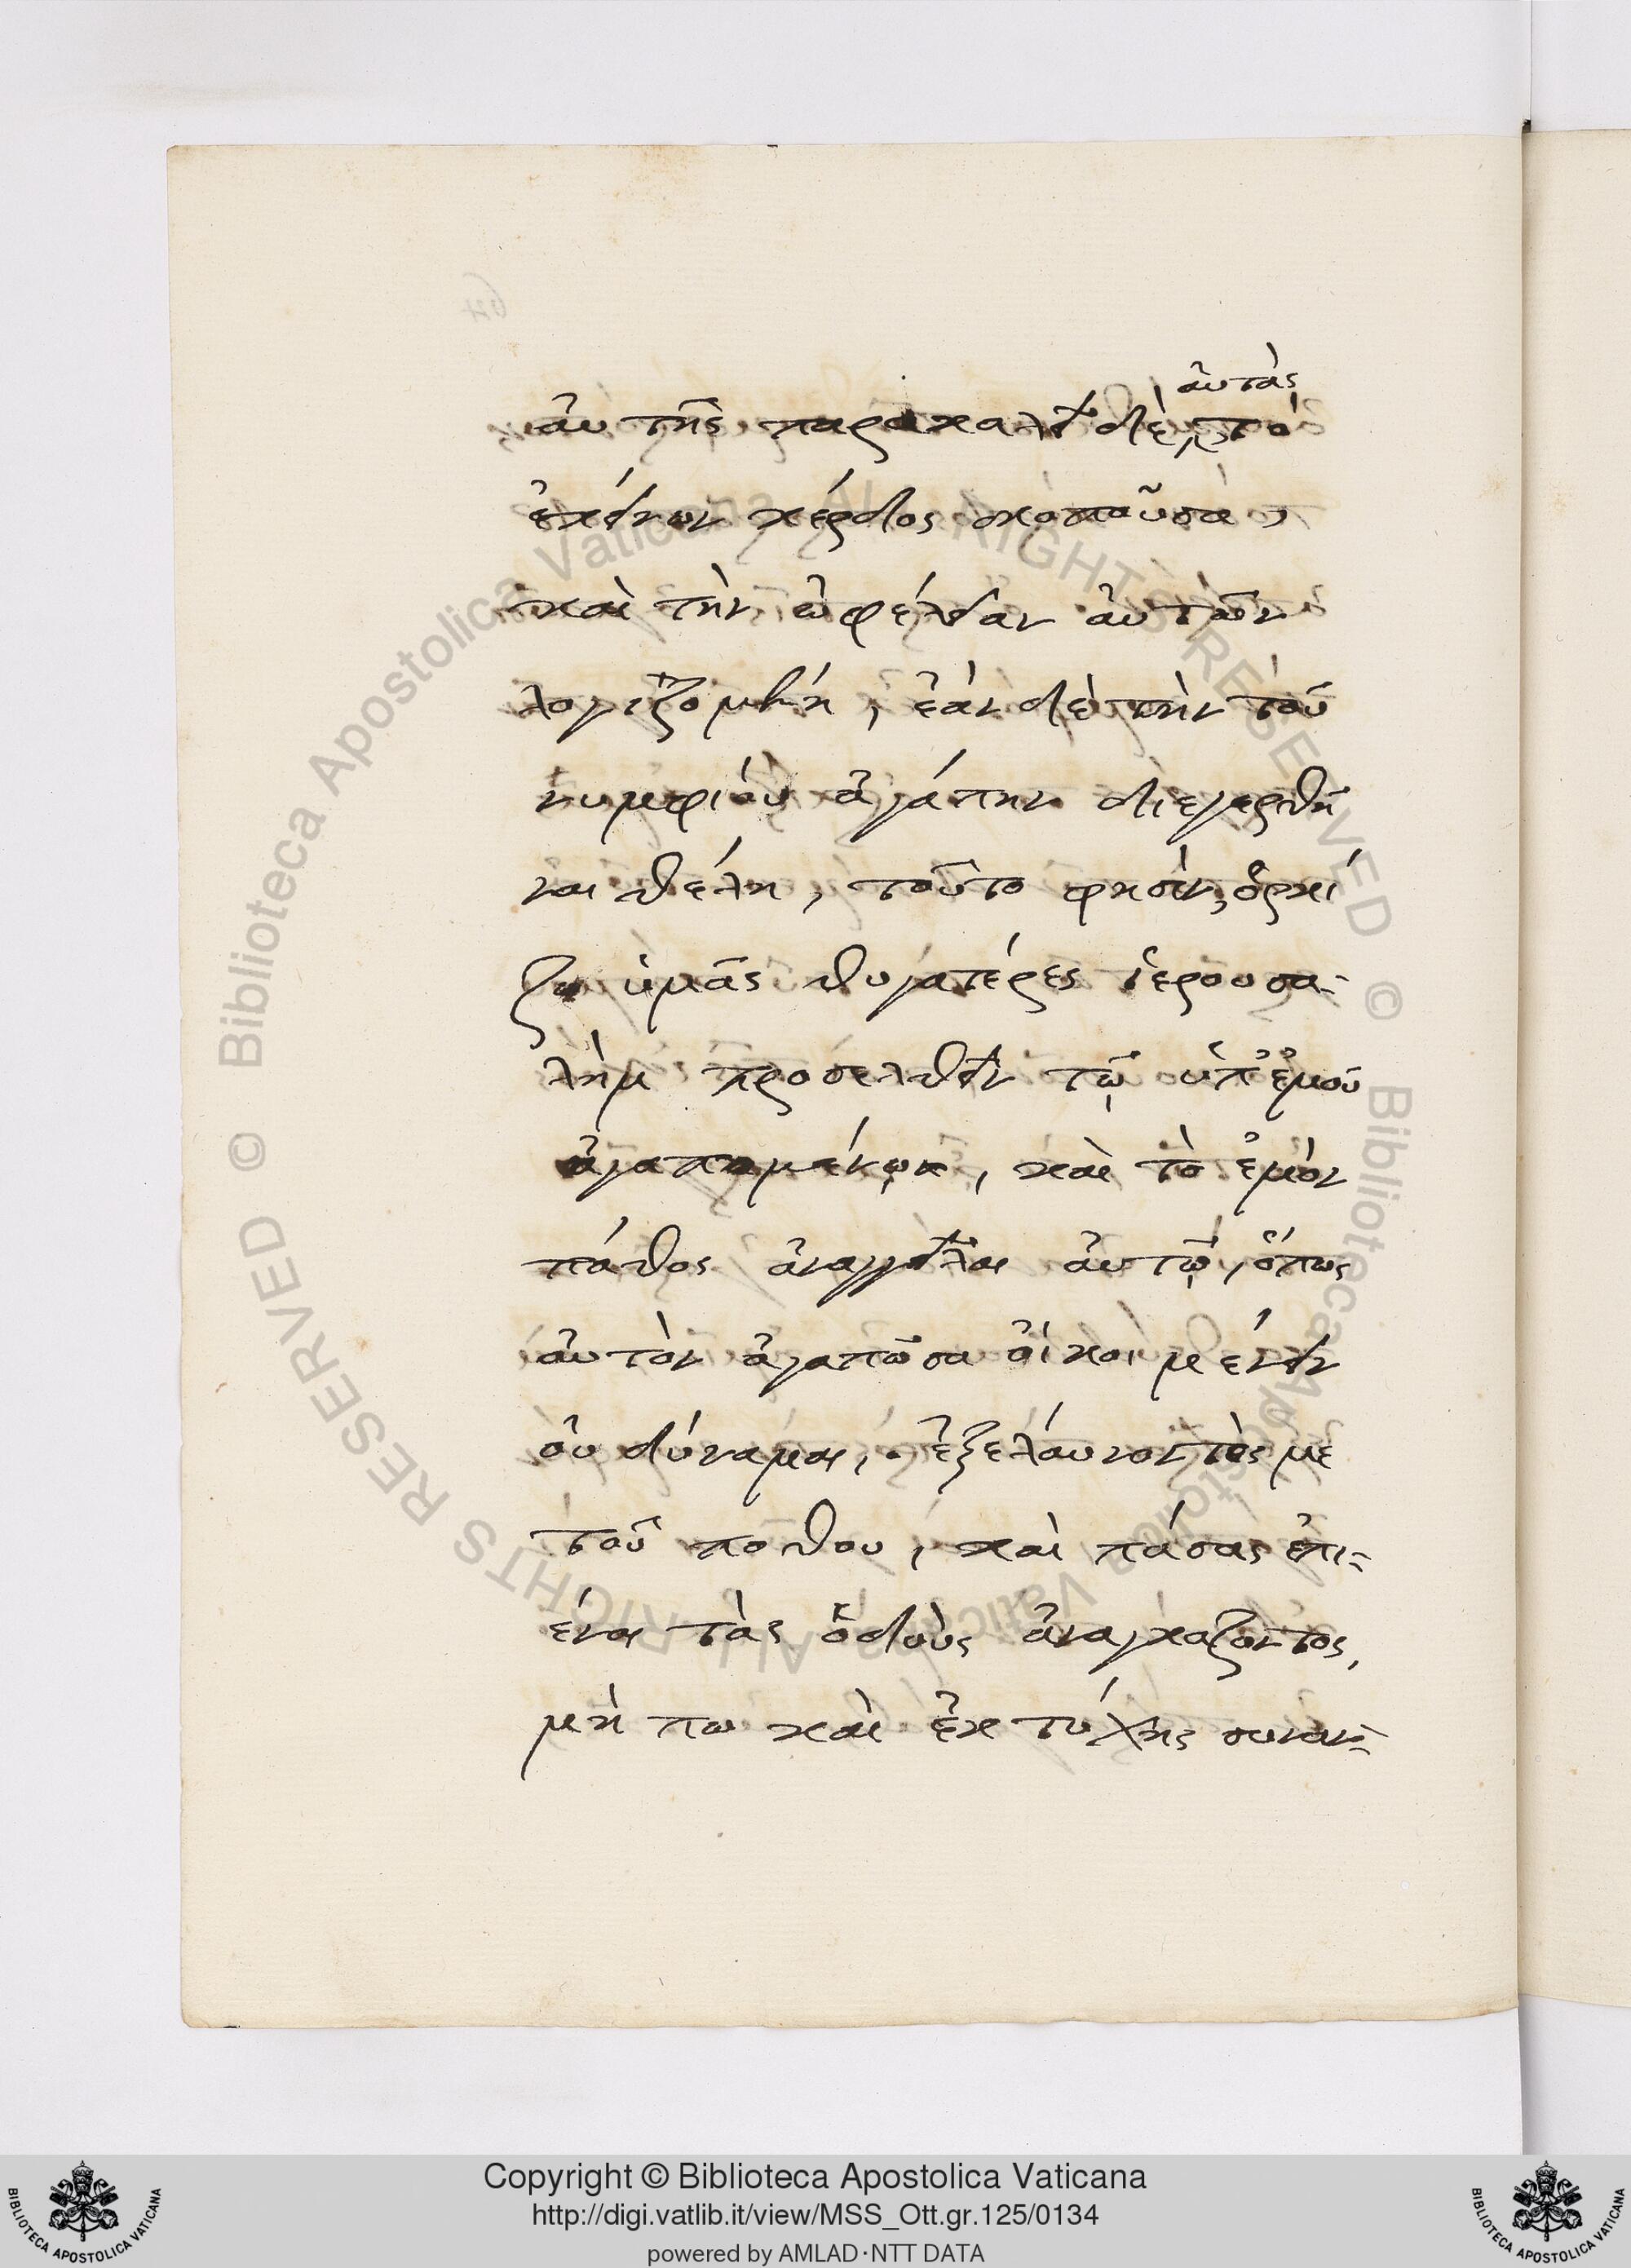 αὐτῆς παρακαλεῖ δὲ αὐτὰς τὸ
ἐκείνων κέρδος σκοποῦσα,
καὶ τὴν ὠφέλειαν αὐτῶν
λογιζομένη, ἐὰν δὲ τὴν τοῦ
νυμφίου ἀγάπην διεγερθῆ
ναι θέλη, τοῦτο φησὶν, ὁρκί
ζω ὑμᾶς θυγατέρες ἱερουσα-
λὴμ προσελθεῖν τῷ ὑπ' ἐμοῦ
καὶ τὸ ἐμὸν
πάθος ἀναγγεῖλαι αὐτῷ, ὅπως
αὐτὸν ἀγαπῶσα οἴκοι μένειν
οὐ δύναμαι, ἐξελαύνοντός με
τοῦ πόθου, καὶ πάσας ἐπι-
έναι τὰς ὁδοὺς ἀναγκάζοντος,
μή πω καὶ ἐκ τύχης συναν-
Copyright © Biblioteca Apostolica Vaticana
http://digi.vatlib.it/view/MSS_Ott.gr.125/0134
powered by AMLAD·NTT DATA
BIBLIOTECA APOSTOLICA VATICANA
BIBLIOTECA APOSTOLICA VATICANA
© Biblioteca Apostolica Vaticana ALL RIGHTS RESERVED
© Biblioteca Apostolica Vaticana ALL RIGHTS RESERVED